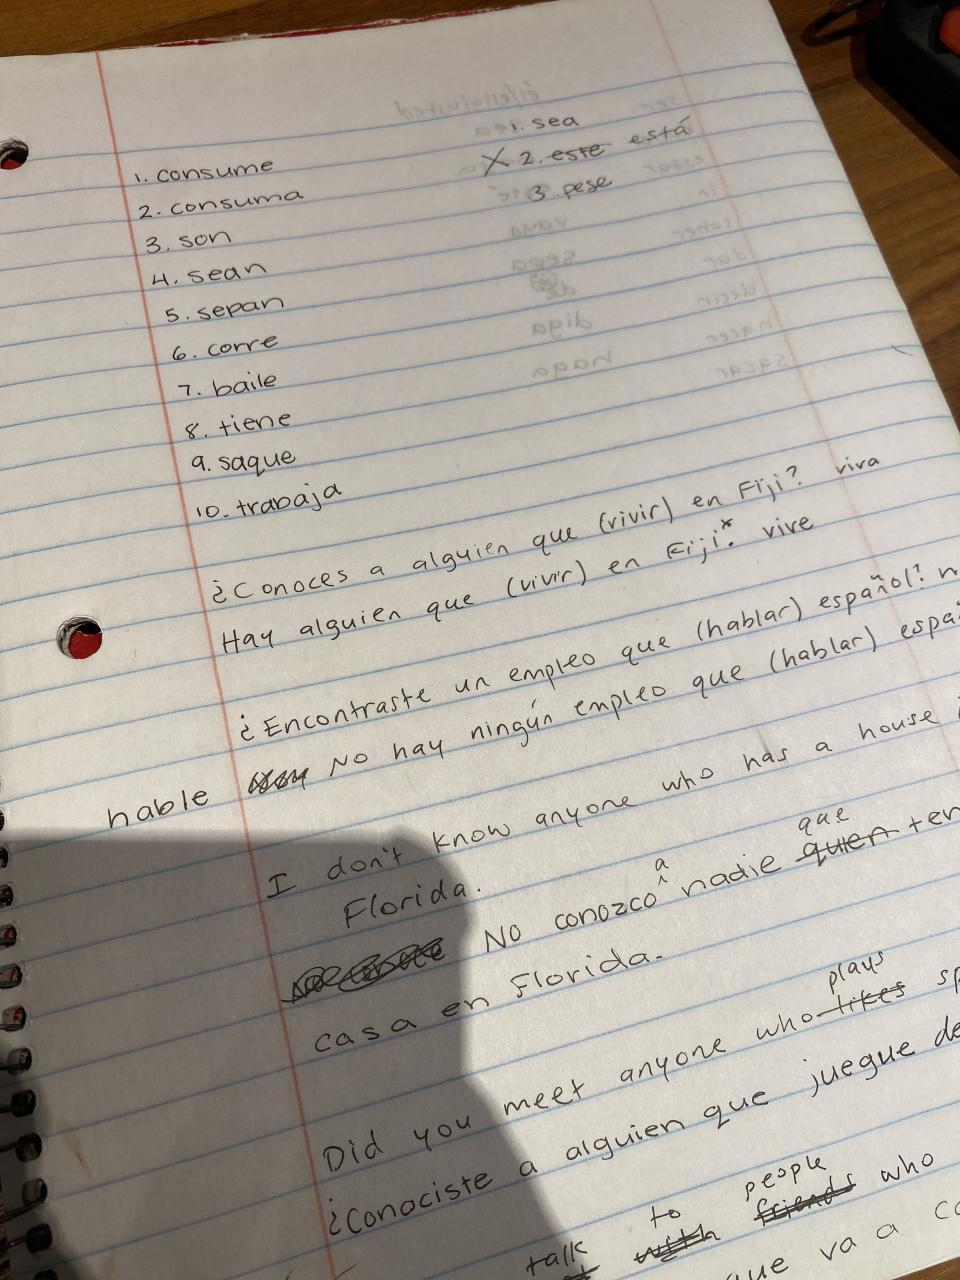 1. consume
2. consuma
3. son
4. sean
5. sepan
6. corre
7. baile
8. tiene
9. saque
10. trabaja
1. sea
X 2. este está
3. pese
¿Conoces a alguien que (vivir) en Fiji? viva
Hay alguien que (vivir) en Fiji. vive
¿Encontraste un empleo que (hablar) español?
No hay ningún empleo que (hablar)
hable
I don't know anyone who has a house
Florida.
No conozco a nadie que quien
casa en Florida.
Did you meet anyone who likes plays
¿Conociste a alguien que juegue
talk to with people friends who
que va a